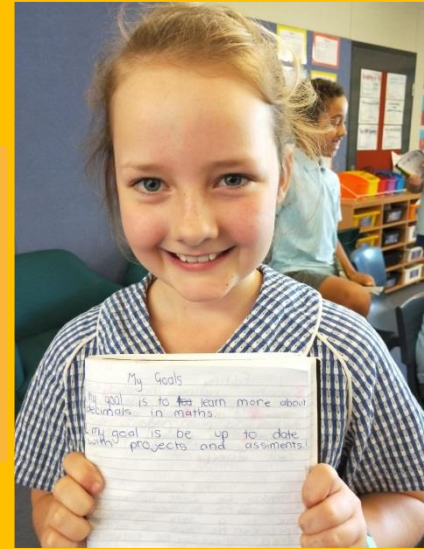 My Goals
My goal is to learn more about
decimals in maths
my goal is be up to date
with projects and assiments!